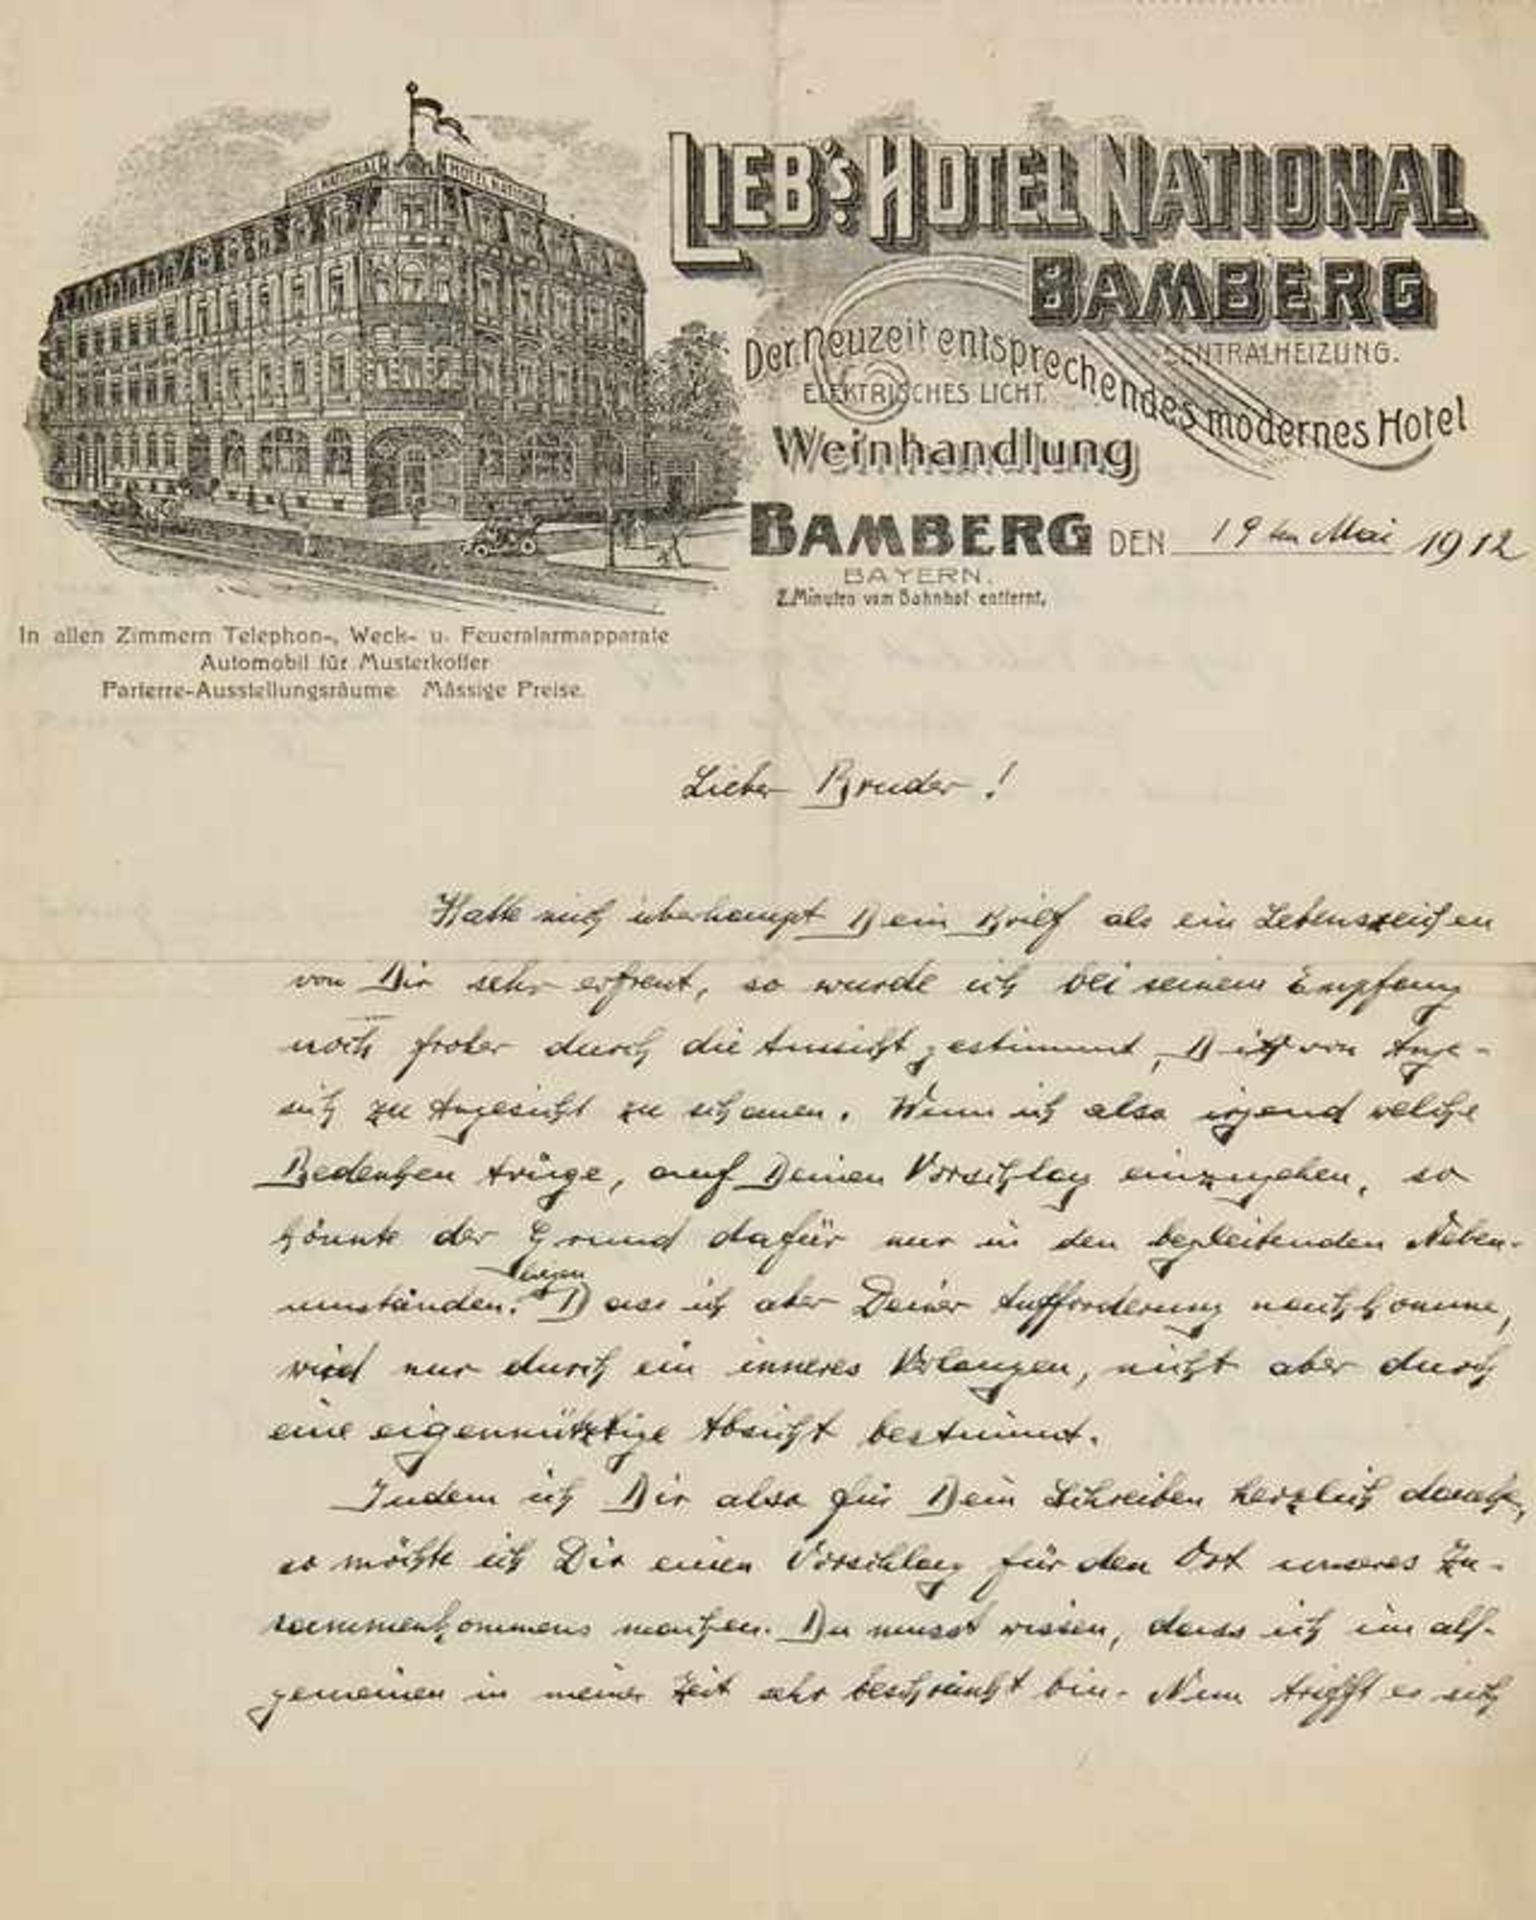 HOTEL NATIONAL
HOTEL NATIONAL
LIEB'S HOTEL NATIONAL
BAMBERG
Der Neuzeit entsprechendes modernes Hotel
CENTRALHEIZUNG.
ELEKTRISCHES LICHT.
Weinhandlung
BAMBERG DEN 19ten Mai 1912
BAYERN.
2 Minuten vom Bahnhof entfernt.
In allen Zimmern Telephon-, Weck- u. Feueralarmapparate
Automobil für Musterkoffer
Parterre-Ausstellungsräume. Mässige Preise.
Lieber Bruder!
Hatte mich überhaupt Dein Brief als ein Lebenszeichen
von Dir sehr erfreut, so wurde ich bei seinem Empfang
noch froher durch die Aussicht gestimmt, Dich von Ange-
sicht zu Angesicht zu schauen. Wenn ich also irgend welche
Bedenken trüge, auf Deinen Vorschlag einzugehen, so
könnte der Grund dafür nur in den begleitenden Neben-
umständen liegen. Dass ich aber Deiner Aufforderung nachkomme,
wird nur durch ein inneres Verlangen, nicht aber durch
eine eigennützige Absicht bestimmt.
Indem ich Dir also für Dein Schreiben herzlich danke,
so möchte ich Dir einen Vorschlag für den Ort unseres Zu-
sammenkommens machen. Du musst wissen, dass ich im all-
gemeinen in meiner Zeit sehr beschränkt bin. Nun trifft es sich